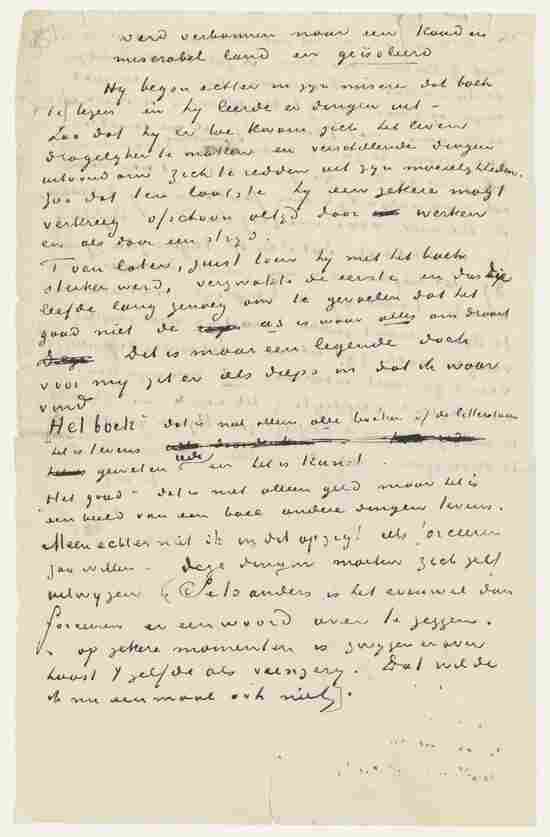 werd verbannen naar een koud en
miserabel land en geïsoleerd
Hy begon echter in zyn misere dat boek
te lezen en hy leerde er dingen uit –
Zoo dat hy er toe kwam zich het leven
dragelyker te maken en verschillende dingen
uitvond om zich te redden uit zyn moeielykheden.
Zoo dat ten laatste hy een zekere magt
verkreeg ofschoon altyd door werken
en als door een stryd.
T van later, juist toen hy met het boek
sterker werd, verzwakte de eerste en dus die
leefde lang genoeg om te gevoelen dat het
goud niet de as is waar alles om draait
Dit is maar een legende doch
voor my zit er iets dieps in dat ik waar
vind
Het boek – dat is niet alleen alle boeken of de litteratuur
het is tevens
geweten rede en het is kunst.
Het goud – dat is niet alleen geld maar het is
een beeld van een boel andere dingen tevens.
Meen echter niet ik in dit opzigt iets forceeren
zou willen – deze dingen moeten zich zelf
uitwyzen (Iets anders is het evenwel dan
forceeren er een woord over te zeggen.
op zekere momenten is zwygen er over
haast 't zelfde als veinzery. Dat wilde
ik nu eenmaal ook niet).